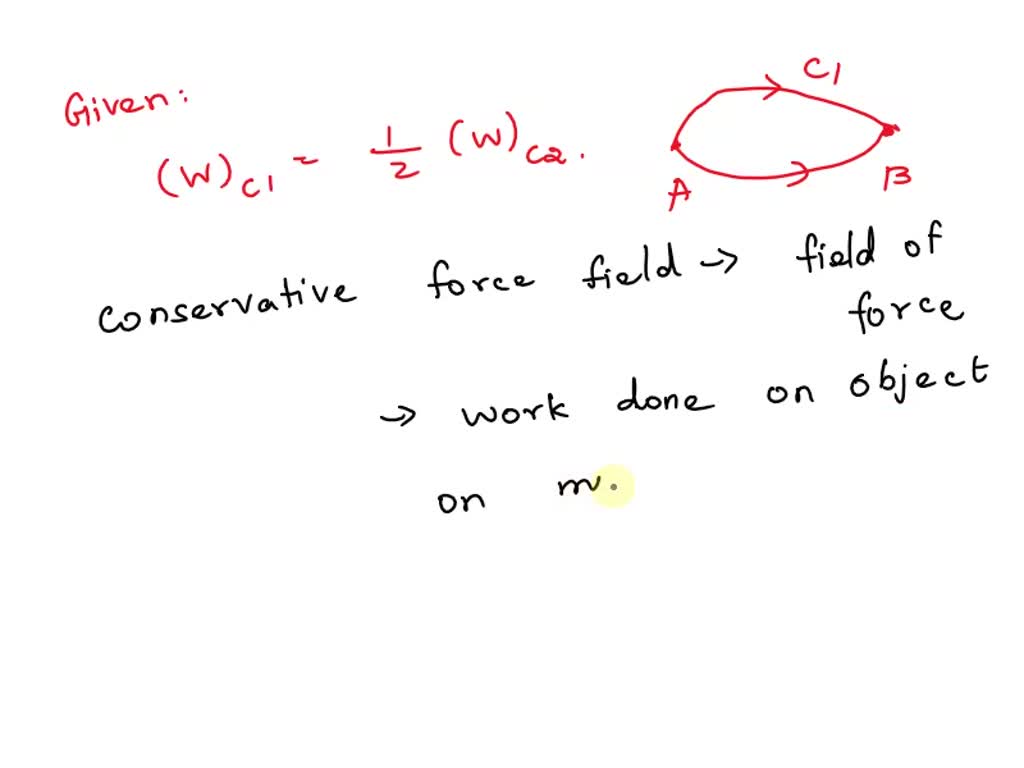 Given:
(W)C1 = 1/2 (W)C2.
C1
A
B
conservative force field → field of
force
→ work done on object
on m.